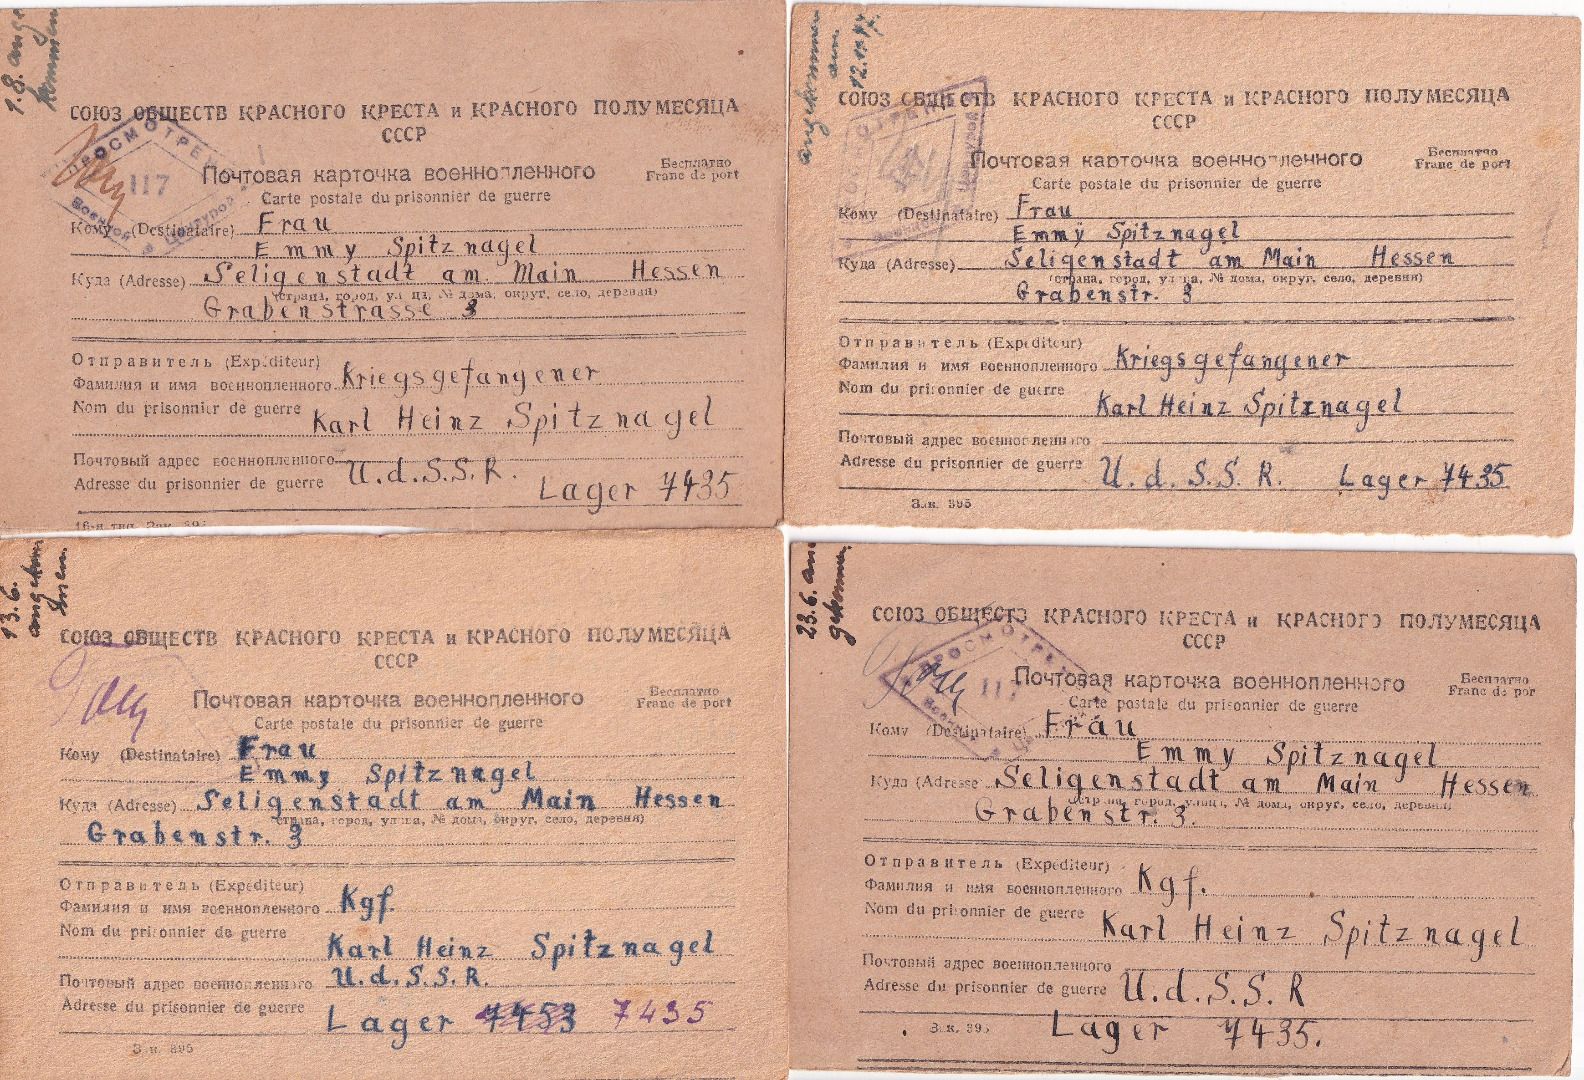 1.8. ange
kommen
СОЮЗ ОБЩЕСТВ КРАСНОГО КРЕСТА и КРАСНОГО ПОЛУМЕСЯЦА
СССР
ПРОСМОТРЕНО
117
Военной Цензурой
Почтовая карточка военнопленного
Бесплатно
Franc de port
Carte postale du prisonnier de guerre
Кому (Destinataire) Frau
Emmy Spitznagel
Куда (Adresse) Seligenstadt am Main Hessen
(страна, город, улица, № дома, округ, село, деревня)
Grabenstrasse 3
Отправитель (Expéditeur)
Фамилия и имя военнопленного Kriegsgefangener
Nom du prisonnier de guerre Karl Heinz Spitznagel
Почтовый адрес военнопленного
Adresse du prisonnier de guerre U.d.S.S.R. Lager 7435
16-я тип. Зак. 395
angekommen
am
СОЮЗ ОБЩЕСТВ КРАСНОГО КРЕСТА и КРАСНОГО ПОЛУМЕСЯЦА
СССР
Почтовая карточка военнопленного
Бесплатно
Franc de port
Carte postale du prisonnier de guerre
Кому (Destinataire) Frau
Emmy Spitznagel
Куда (Adresse) Seligenstadt am Main Hessen
(страна, город, улица, № дома, округ, село, деревня)
Grabenstr. 3
Отправитель (Expéditeur)
Фамилия и имя военнопленного Kriegsgefangener
Nom du prisonnier de guerre
Karl Heinz Spitznagel
Почтовый адрес военнопленного
Adresse du prisonnier de guerre U.d.S.S.R. Lager 7435
Зак. 395
13.6.
angekom
men
СОЮЗ ОБЩЕСТВ КРАСНОГО КРЕСТА и КРАСНОГО ПОЛУМЕСЯЦА
СССР
Почтовая карточка военнопленного
Бесплатно
Franc de port
Carte postale du prisonnier de guerre
Кому (Destinataire) Frau
Emmy Spitznagel
Куда (Adresse) Seligenstadt am Main Hessen
(страна, город, улица, № дома, округ, село, деревня)
Grabenstr. 3
Отправитель (Expéditeur)
Фамилия и имя военнопленного Kgf.
Nom du prisonnier de guerre
Karl Heinz Spitznagel
Почтовый адрес военнопленного U.d.S.S.R.
Adresse du prisonnier de guerre
Lager 7453 7435
Зак. 395
23.6. an
gekommen
СОЮЗ ОБЩЕСТВ КРАСНОГО КРЕСТА и КРАСНОГО ПОЛУМЕСЯЦА
СССР
ПРОСМОТРЕНО
117
Почтовая карточка военнопленного
Бесплатно
Franc de por
Carte postale du prisonnier de guerre
Кому (Destinataire) Frau
Emmy Spitznagel
Куда (Adresse Seligenstadt am Main Hessen
(страна, город, улица, № дома, округ, село, деревня)
Grabenstr. 3.
Отправитель (Expéditeur)
Фамилия и имя военнопленного Kgf.
Nom du prisonnier de guerre
Karl Heinz Spitznagel
Почтовый адрес военнопленного
Adresse du prisonnier de guerre U.d.S.S.R
Зак. 395 Lager 7435.